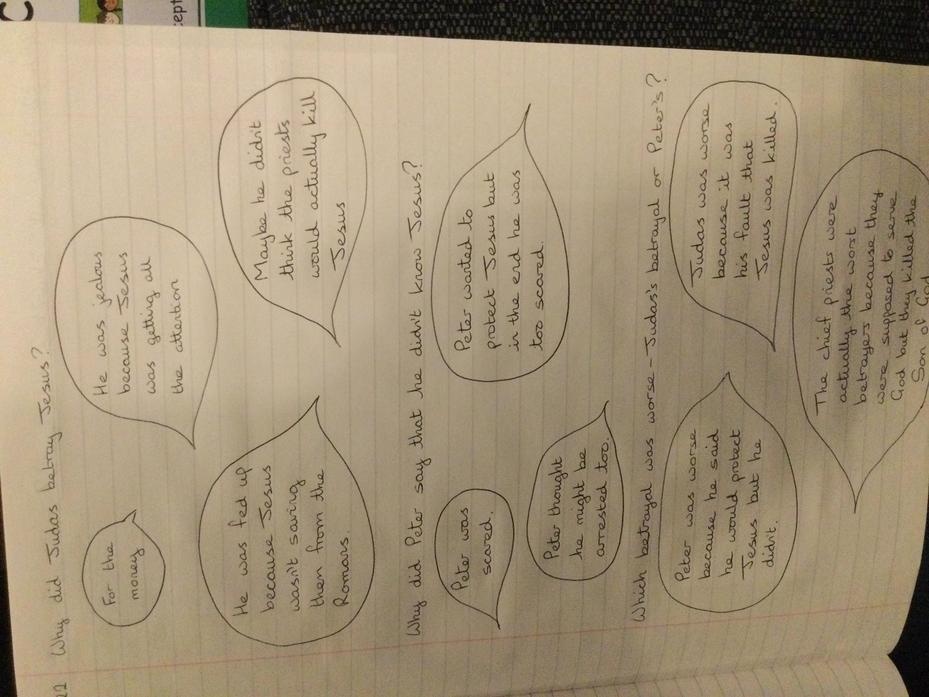 22
Why did Judas betray Jesus?
For the
money
He was jealous
because Jesus
was getting all
the attention
He was fed up
because Jesus
wasn't saving
them from the
Romans
Maybe he didn't
think the priests
would actually kill
Jesus
Why did Peter say that he didn't know Jesus?
Peter was
scared.
Peter wanted to
protect Jesus but
in the end he was
too scared.
Peter thought
he might be
arrested too.
Which betrayal was worse - Judas's betrayal or Peter's?
Peter was worse
because he said
he would protect
Jesus but he
didn't.
Judas was worse
because it was
his fault that
Jesus was killed.
The chief priests were
actually the worst
betrayers because they
were supposed to serve
God but they killed the
Son of God
C
cept